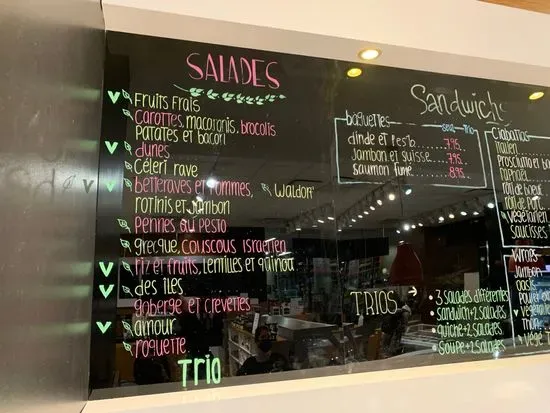 SALADES
Fruits Frais
Carottes, macaronis, brocolis
Patates et bacon
dunes
Céleri rave
betteraves et pommes, Waldorf
rotinis et jambon
Pennes au Pesto
grecque, couscous israelien
riz et fruits, lentilles et quinoa
des îles
goberge et crevettes
amour
roquette
Trio
Sandwichs
baguettes seul trio
dinde et Pesto 7.95
Jambon et suisse 7.95
saumon fumé 8.95
TRIOS →
• 3 salades différentes
sandwich + 2 salades
• quiche + 2 salades
soupe + 2 salades
Ciabattas
italien
Prosciutto et
raphael
roti de boeuf
roti de Porc
Végétarien
saucisses
Wraps
Jambon
oasis
Poulet
végé
thon
végé